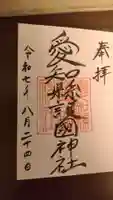 奉拝
愛知縣護國神社
令和七年八月二十四日